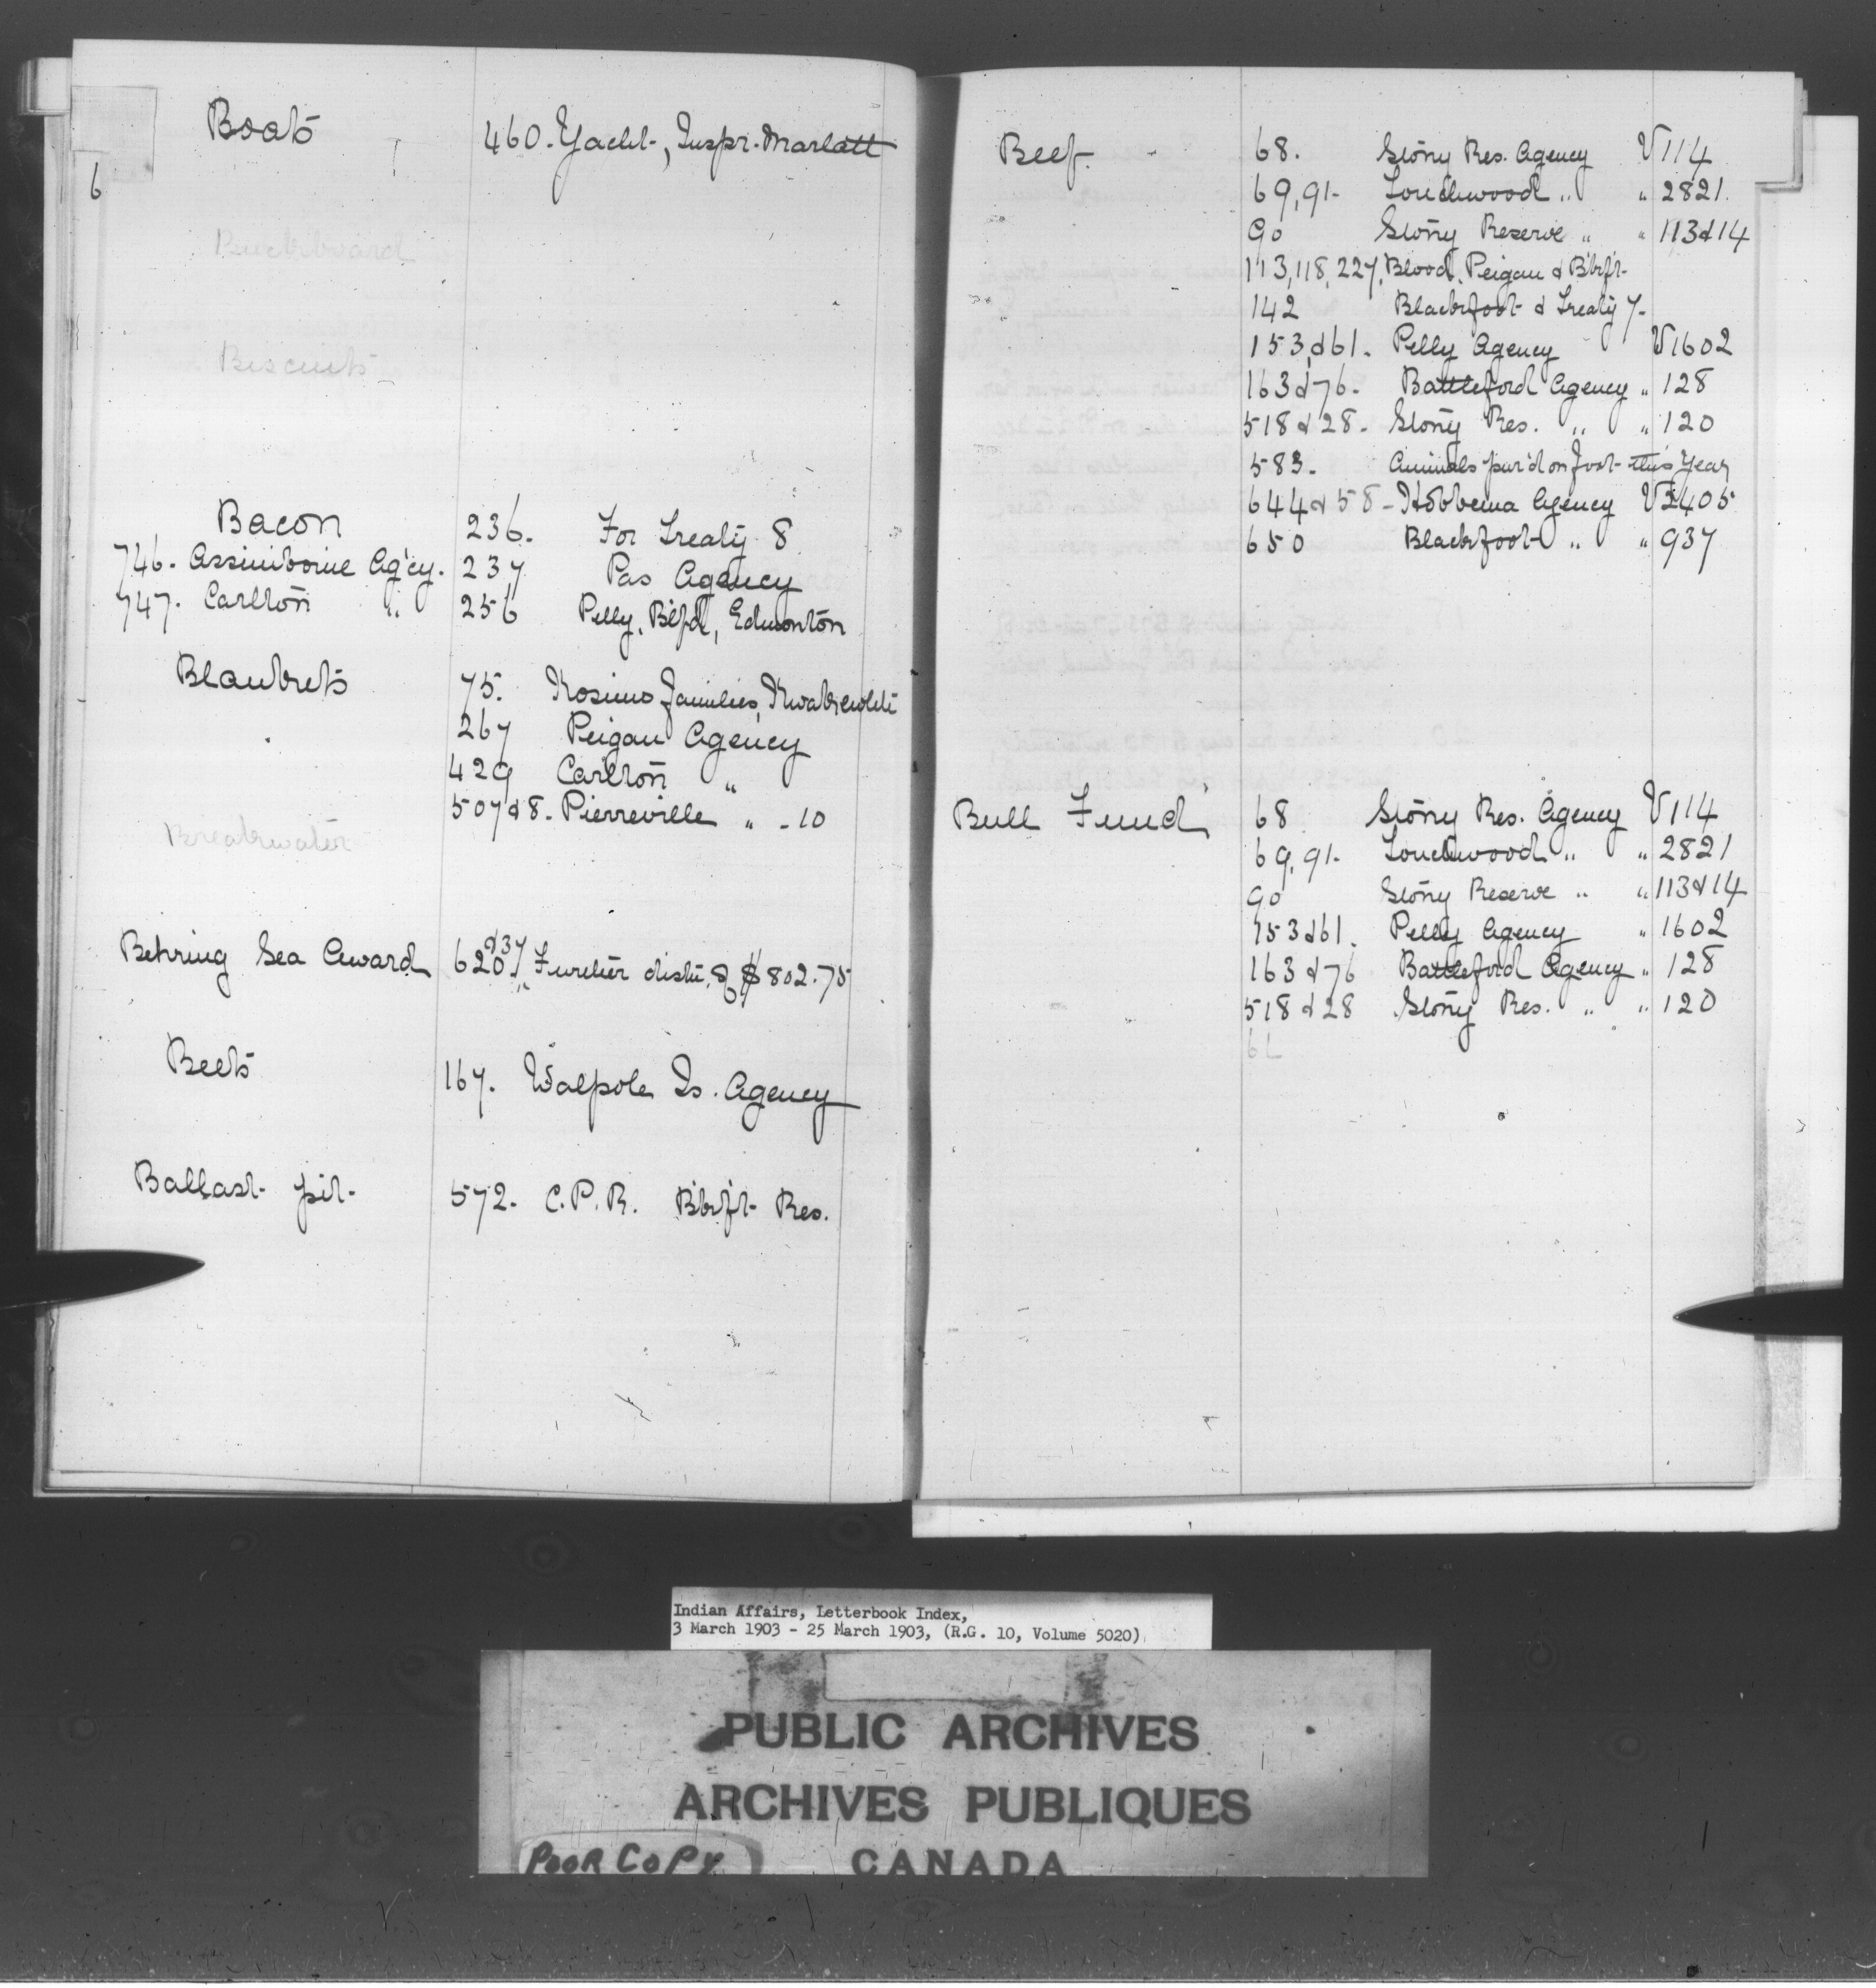 6
Boats 460. Yacht, Inspr. Marlatt
Buckboard
Biscuits
Bacon 236. For Treaty 8
746. Assiniboine Ag'cy. 237 Pas Agency
747. Carlton " 256 Pelly, B'lfd, Edmonton
Blankets 75. Kosimo families, Kwakewlth
267 Peigan Agency
429 Carlton "
507 & 8. Pierreville " - 10
Breakwater
Behring Sea Award 620 & 37. Further distn. of $802.75
Beets 167. Walpole Is. Agency
Ballast pit 572. C.P.R. B'kf't Res.
Beef. 68. Stony Res. Agency V 114
69, 91- Touchwood " " 2821.
90 Stony Reserve " " 113 & 14
113, 118, 227, Blood, Peigan & B'kf't
142 Blackfoot & Treaty 7-
153, & 61. Pelly Agency V 1602
163 & 76. Battleford Agency " 128
518 & 28. Stony Res. " " 120
583. Animals pur'd on foot this year
644 & 58 - Hobbema Agency V 2405
650 Blackfoot " " 937
Bull Fund 68 Stony Res. Agency V 114
69, 91. Touchwood " " 2821
90 Stony Reserve " " 113 & 14
153 & 61. Pelly Agency " 1602
163 & 76 Battleford Agency " 128
518 & 28 Stony Res. " " 120
6
Indian Affairs, Letterbook Index,
3 March 1903 - 25 March 1903, (R.G. 10, Volume 5020)
PUBLIC ARCHIVES
ARCHIVES PUBLIQUES
CANADA
POOR COPY